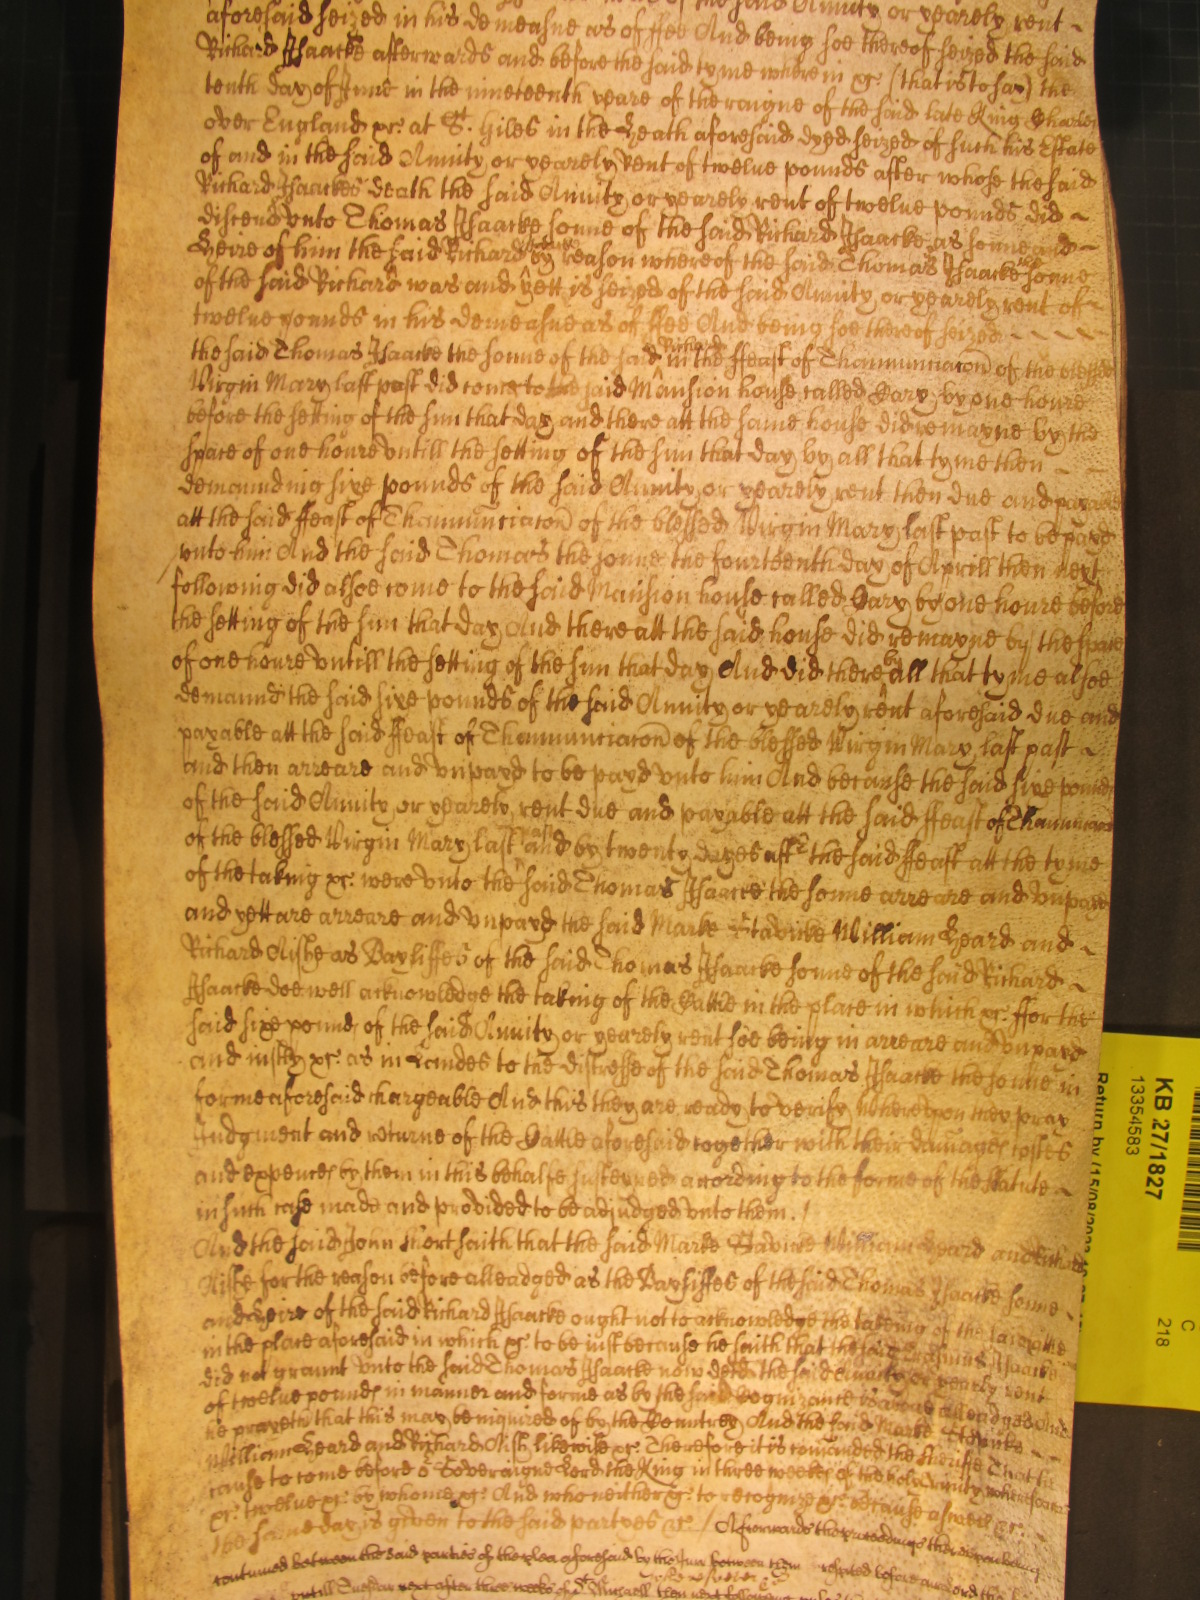 of the said Annuity or yearely rent
aforesaid seized in his demeasne as of ffee And being soe thereof seized the said
Richard Isaacke afterwards and before the said tyme wherein &c. (that is to say) the
tenth day of June in the nineteenth yeare of the raigne of the said late King Charles
over England &c. at St. Giles in the Heath aforesaid dyed seized of such his Estate
of and in the said Annuity or yearely rent of twelve pounds after whose the said
Richard Isaackes death the said Annuity or yearely rent of twelve pounds did
discend unto Thomas Isaacke sonne of the said Richard Isaacke as sonne and
Heire of him the said Richard by reason whereof the said Thomas Isaacke the sonne
of the said Richard was and yett is seized of the said Annuity or yearely rent of
twelve pounds in his demeasne as of ffee And being soe thereof seized
the said Thomas Isaacke the sonne of the said Richard in the ffeast of Thannunciacon of the blessed
Virgin Mary last past did come to the said Mansion house called Hary by one houre
before the setting of the sun that day and there att the same house did remayne by the
space of one houre untill the setting of the sun that day by all that tyme then
demaunding sixe pounds of the said Annuity or yearely rent then due and payable
att the said ffeast of Thannunciacon of the blessed Virgin Mary last past to be payd
unto him And the said Thomas the sonne the fourteenth day of Aprill then next
following did alsoe come to the said Mansion house called Hary by one houre before
the setting of the sun that day And there att the said house did remayne by the space
of one houre untill the setting of the sun that day And did there by all that tyme alsoe
demaund the said sixe pounds of the said Annuity or yearely rent aforesaid due and
payable att the said ffeast of Thannunciacon of the blessed Virgin Mary last past
and then arreare and unpayd to be payd unto him And because the said sixe pounds
of the said Annuity or yearely rent due and payable att the said ffeast of Thannunciacon
of the blessed Virgin Mary last past and by twenty dayes aftr the said ffeast att the tyme
of the taking &c. were unto the said Thomas Isaacke the sonne arreare and unpayd
and yett are arreare and unpayd the said Marke William Heard and
Richard as Bayliffes of the said Thomas Isaacke sonne of the said Richard
Isaacke doe well acknowledge the taking of the Cattle in the place in which &c. ffor the
said sixe pounds of the said Annuity or yearely rent soe being in arreare and unpayd
and justly &c. as in Landes to the distresse of the said Thomas Isaacke the sonne in
forme aforesaid chargeable And this they are ready to verify whereupon they pray
Judgment and returne of the Cattle aforesaid together with their damages costes
and expences by them in this behalfe susteyned according to the forme of the Statute
in such case made and provided to be adjudged unto them.
And the said John Short saith that the said Marke William Heard and Richard
for the reason before alleadged as the Bayliffes of the said Thomas Isaacke sonne
and Heire of the said Richard Isaacke ought not to acknowledge the takeing of the said cattle
in the place aforesaid in which &c. to be just because he saith that the said Erasmus Isaacke
did not graunt unto the said Thomas Isaacke now decd. the said Annuity or yearly rent
of twelve pounds in manner and forme as by the said Cognizance is above alleadged And
he prayeth that this may be inquired of by the Countrey And the said Marke
William Heard and Richard likewise &c. Therefore it is comanded the Sheriffe That he
cause to come before or Soveraigne Lord the King in three weekes of the holy Trinity wheresoever
&c. twelve &c. by whome &c. And who neither &c. to recognize &c. because aswell &c.
the same day is given to the said partyes &c. / Afterwards the proceedings thereupon being
continued between the said parties of the plea aforesaid by the Jury between them respited before our Lord the
untill Tuesday next after three weekes of St Michaell then next following
KB 27/1827
13354583
C
218